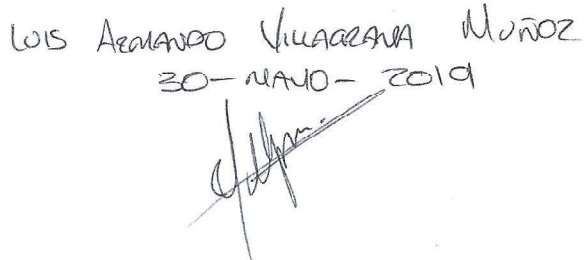 LUIS ARMANDO VILLAGRANA MUÑOZ
30-MAYO-2019